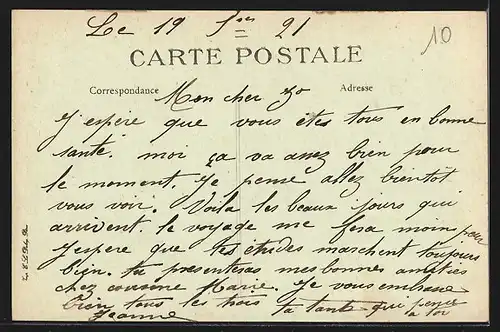 Le 19 21
10
CARTE POSTALE
Correspondance
Adresse
Mon cher
J'espère que vous êtes tous en bonne
santé. moi ça va assez bien pour
le moment. Je pense allez bientôt
vous voir. Voila les beaux jours qui
arrivent. le voyage me fera moin peur
J'espere que tes études marchent toujours
bien. tu presenteras mes bonnes amitiés
chez cousine Marie. Je vous embrasse
bien tous les trois ta tante qui pense
a toi
Jeanne